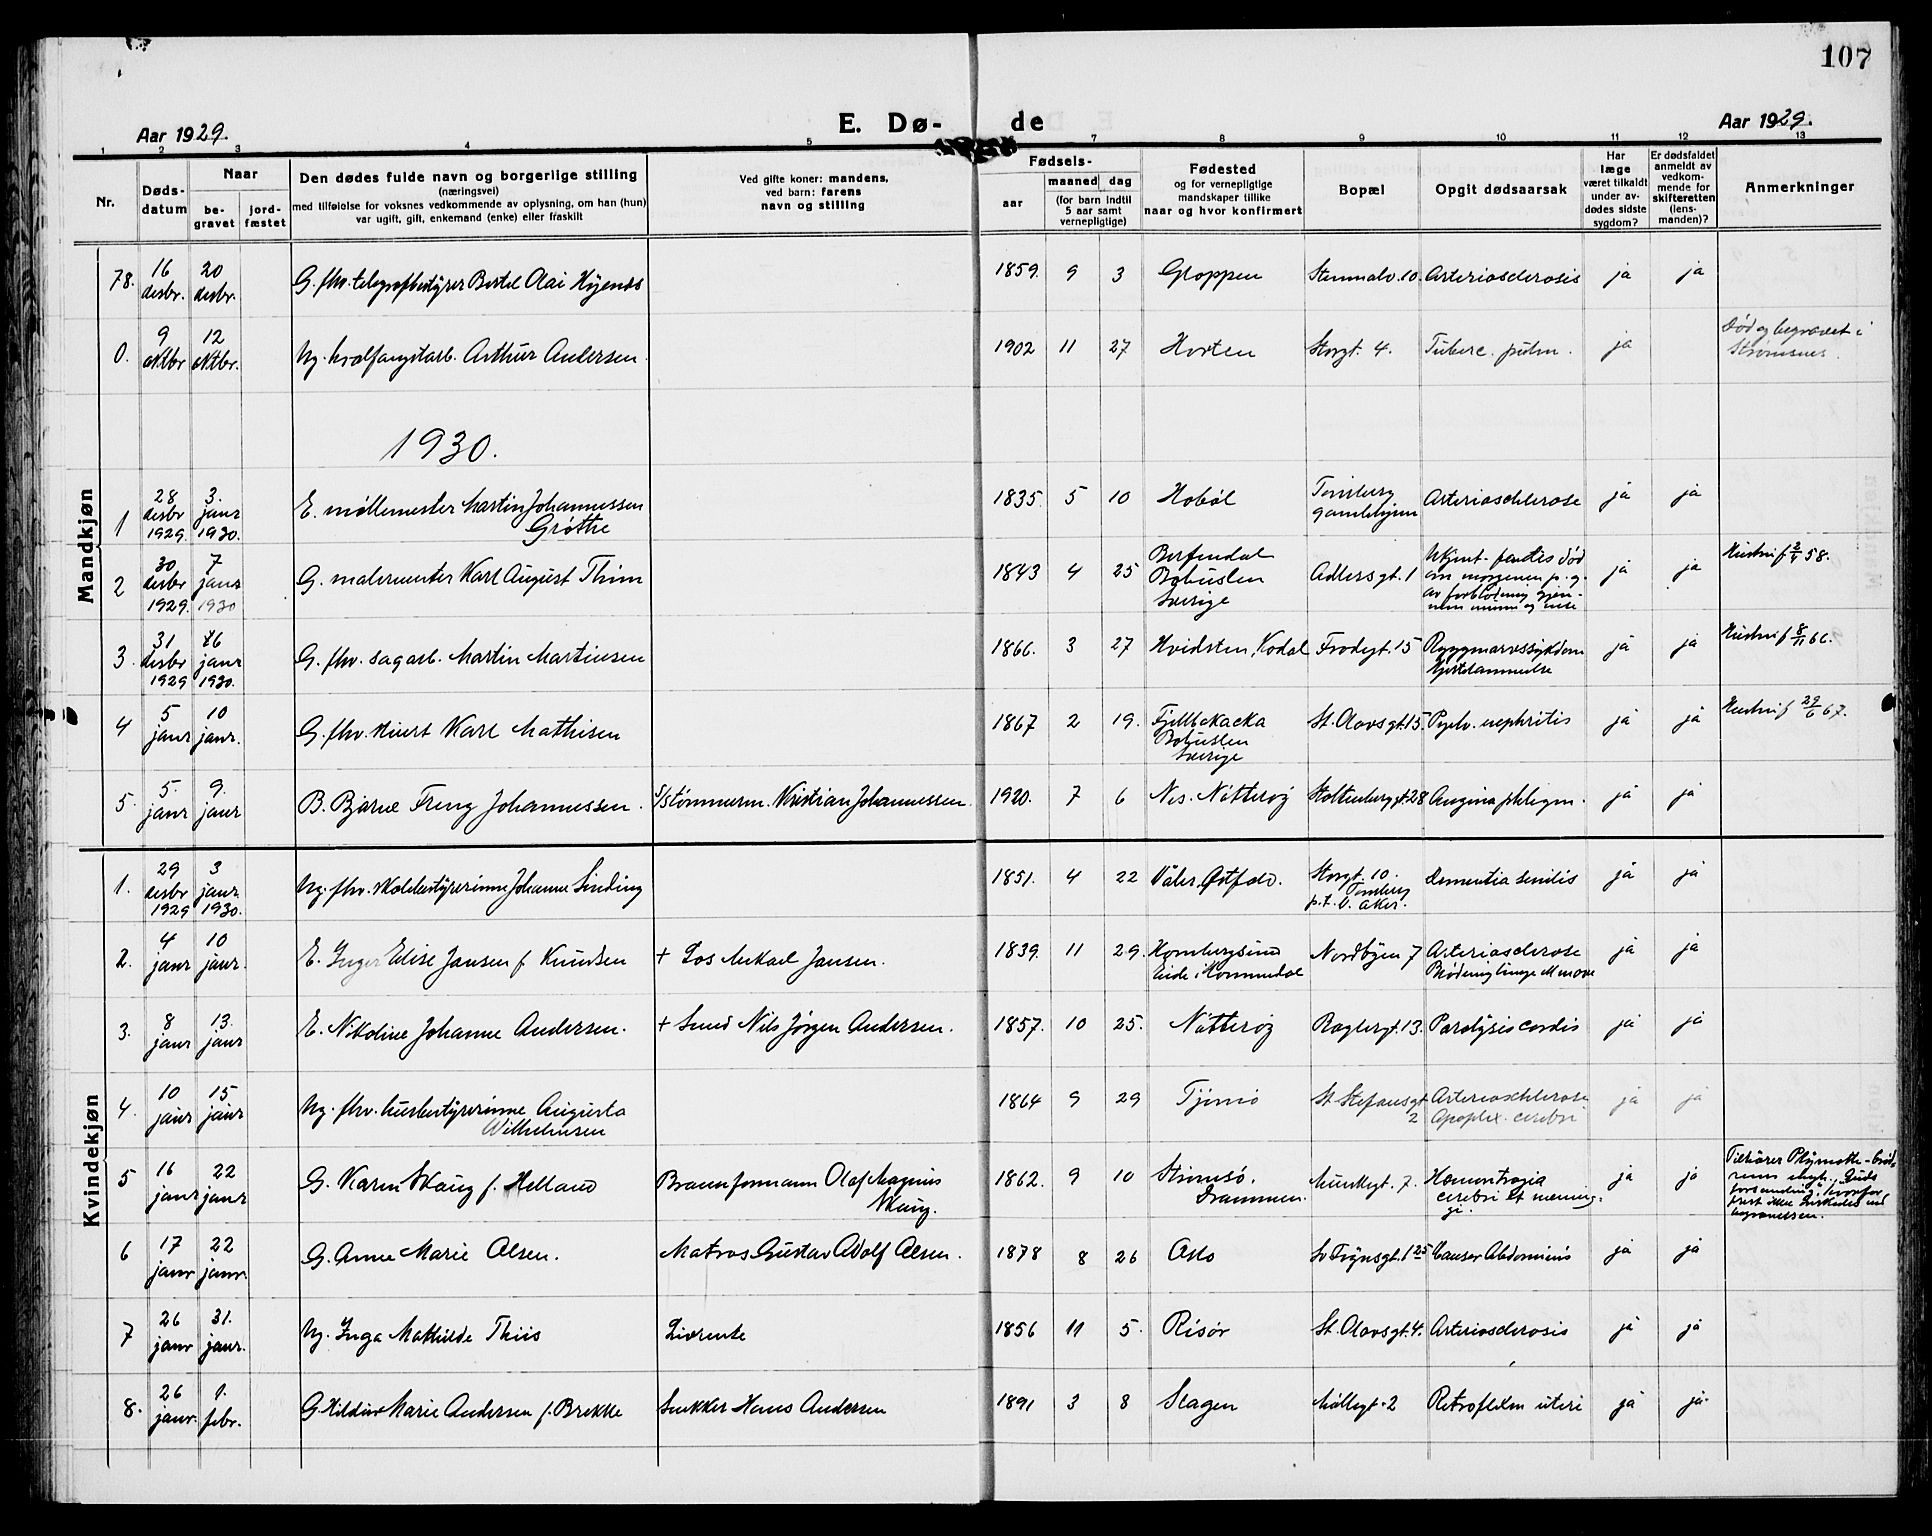 107
Aar 1929.
E. Dø-
de
Aar 1929.
1 2 3 4 5 7 8 9 10 11 12 13
Nr.
Døds-
datum
Naar
be-
gravet
jord-
fæstet
Den dødes fulde navn og borgerlige stilling
(næringsvei)
med tilføielse for voksnes vedkommende av oplysning, om han (hun)
var ugift, gift, enkemand (enke) eller fraskilt
Ved gifte koner: mandens,
ved barn: farens
navn og stilling
Fødsels-
aar
maaned dag
(for barn indtil
5 aar samt
vernepligtige)
Fødested
og for vernepligtige
mandskaper tillike
naar og hvor konfirmert
Bopæl
Opgit dødsaarsak
Har
læge
været tilkaldt
under av-
dødes sidste
sygdom?
Er dødsfaldet
anmeldt av
vedkom-
mende for
skifteretten
(lens-
manden)?
Anmerkninger
Mandkjøn
78. 16 desbr. 20 desbr. G. fhv. telegrafbestyrer Bertel Olai 1859. 9 3 Gloppen 10. Arteriosclerosis ja ja
0. 9 oktbr 12 oktbr. Ug. hvalfangstarb. Arthur Andersen 1902 11 27 Horten Storgt. 4. Tuberc. pulm. ja
Død og begravet i
1930.
1 28 desbr 1929. 3. janr 1930. E. møllemester Martin Johannessen
Grøthe
1835. 5 10 Hobøl Tønsberg
gamlehjem
Arteriosclerose ja ja
2 30 desbr 1929. 7 janr 1930 G. malermester Karl August Thim 1843 4 25
Bohuslen
Sverige
Adlersgt. 1 Ukjent - fandtes død
om morgenen p. g.
av forblødning gjen-
nem munn og nese
ja ja Hustru f 2/4 58.
3. 31 desbr 1929 6 janr 1930. G. fhv. sagarb. Martin Martinsen 1866. 3 27 Hvidsten, Kodal Frodegt. 15 Ryggmarvssykdom
Hjertelammelse
ja ja Hustru f 8/11 66.
4 5 janr 10 janr. G. fhv. Karl Mathisen 1867 2 19. Fjellbckacka
Bohuslen
Sverige
St. Olavsgt. 15. Pyelo. nephritis ja ja Hustru f 29/6 67.
5. 5. janr 9. janr B. Bjarne Freng Johannessen. S/tømmerm. Kristian Johannessen. 1920. 7 6 Nes. Nøtterøy Stoltenberggt. 28 Angina phlegm. ja ja
Kvindekjøn
1. 29 desbr 1929 3 janr. 1930. Ug. fhv. skolebestyrerinne Johanne Sinding 1851. 4 22 Våler, Østfold. Storgt. 10.
Tønsberg
p.t. V. Aker.
Dementia senilis ja ja
2. 4 janr 10 janr. E. Inger Elise Jansen f. Knudsen + Los Mikael Jansen. 1839. 11 29.
Eide i Hommedal
Nordbyen 7 Arteriosclerose
ja ja
3. 8 janr 13. janr E. Nikoline Johanne Andersen. + Smed Nils Jørgen Andersen. 1857. 10 25. Nøtterøy Baglergt. 13. Paralysis cordis ja ja
4. 10 janr 15 janr Ug. fhv. husbestyrerinne Augusta
Wilhelmsen
1864 9 29 Tjømø St. Stefansgt
2
Arterioschlerose
Apoplex. cerebri
ja ja
5 16 janr 22 janr G. Karen Skaug f. Helland Brannformann Olaf Magnus
Skaug.
1862. 9 10 Strømsø.
Drammen.
Munkegt. 7. Hæmorrhagia
cerebri et mening.
gi.
ja ja Tilhører Plymotte-brød-
begravelsen.
6 17 janr 22 janr. G. Anne Marie Olsen. Matros Gustav Adolf Olsen. 1878 8 26 Oslo Sv Foynsgt. 125 Cancer Abdominis ja ja
7 26 janr 31. janr. Ug. Inga Mathilde Thiis Livrente 1856 11 5. Risør St. Olavsgt. 4. Arteriosclerosis ja ja
8. 26 janr. 1. febr. G. Hildur Marie Andersen f. Brekke Snekker Hans Andersen 1891 3 8 Slagen Møllegt. 2 uteri ja ja